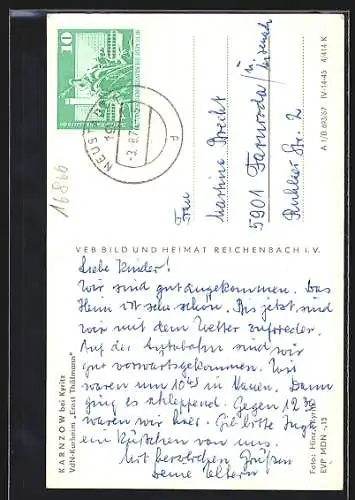 10
NEUST
-3.-8.7
P
16866
Frau
Martina Brecht
5901 Farnroda /
Ruhlaer Str. 2
A 1/B 693/67 IV-14-45 4/414 K
VEB BILD UND HEIMAT REICHENBACH i. V.
Liebe Kinder!
Wir sind gut angekommen. Das
Heim ist sehr schön. Bis jetzt sind
wir mit dem Wetter zufrieden.
Auf der Autobahn sind wir
gut vorwärtsgekommen. Wir
waren um 10 in Nauen. Dann
ging es schleppend. Gegen 12 30
waren wir hier. Gib bitte
ein Küßchen von uns.
Mit herzlichen Grüßen
Deine Eltern
KARNZOW bei Kyritz
VdN-Kurheim „Ernst Thälmann"
Foto: Hinz, Kyritz
EVP MDN -,15